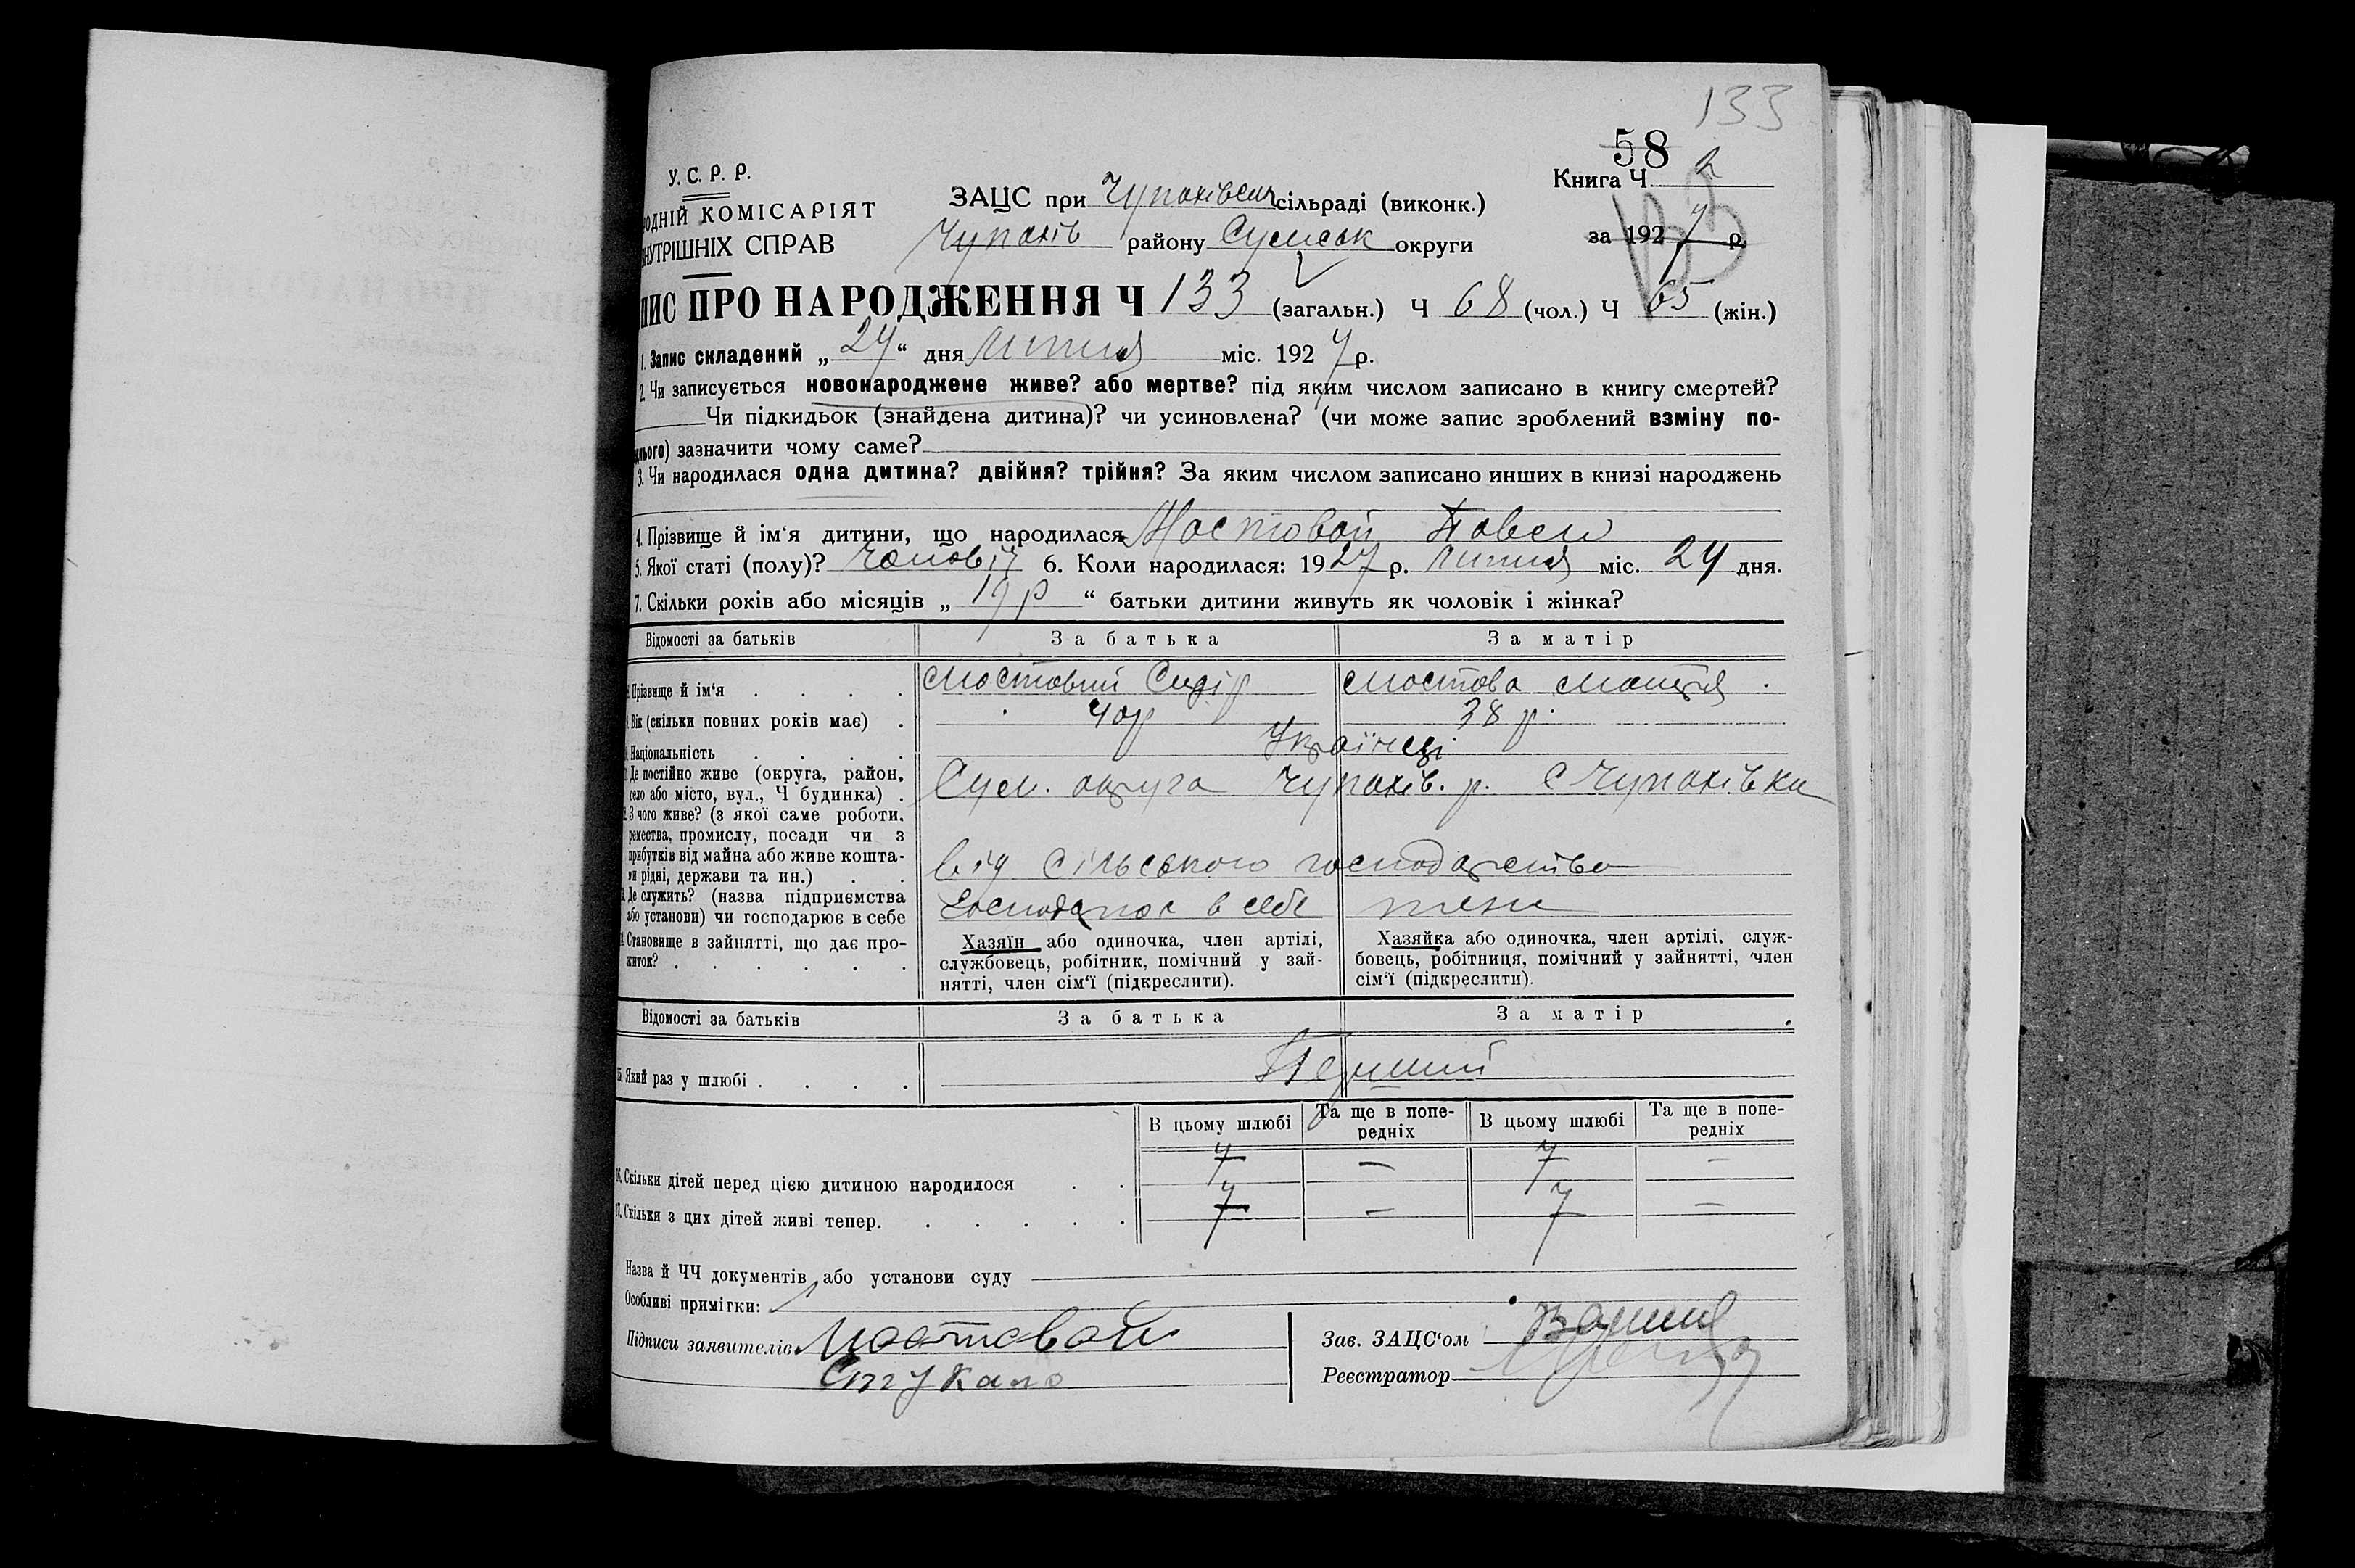 133
58
У. С. Р. Р.
Книга Ч 2
ОДНІЙ КОМІСАРІЯТ
ЗАЦС при Чупахівськ сільраді (виконк.)
НУТРІШНІХ СПРАВ
Чупахів району Сумськ округи
за 1927 р.
ПИС ПРО НАРОДЖЕННЯ Ч 133 (загальн.) Ч 68 (чол.) Ч 65 (жін.)
1. Запис складений „ 24 “ дня липня міс. 1927 р.
2. Чи записується новонароджене живе? або мертве? під яким числом записано в книгу смертей?
Чи підкидьок (знайдена дитина)? чи усиновлена? (чи може запис зроблений взміну по-
нього) зазначити чому саме?
3. Чи народилася одна дитина? двійня? трійня? За яким числом записано инших в книзі народжень
4. Прізвище й ім‘я дитини, що народилася Мостовой Павел
5. Якої статі (полу)? чоловіч 6. Коли народилася: 1927 р. липня міс. 24 дня.
7. Скільки років або місяців „ 19 р “ батьки дитини живуть як чоловік і жінка?
Відомості за батьків За батька За матір
Прізвище й ім‘я Мостовий Сидір Мостова
Вік (скільки повних років має) 40 р 38 р.
Національність Українці
Де постійно живе (округа, район,
село або місто, вул., Ч будинка) Сум. округа Чупахів. р. С Чупахівка
З чого живе? (з якої саме роботи,
ремества, промислу, посади чи з
прибутків від майна або живе кошта-
ми рідні, держави та ин.) від сільського господарства
Де служить? (назва підприємства
або установи) чи господарює в себе Господарює в себе теж
Становище в зайнятті, що дає про-
житок?
Хазяїн або одиночка, член артілі,
службовець, робітник, помічний у зай-
нятті, член сім‘ї (підкреслити).
Хазяйка або одиночка, член артілі, служ-
бовець, робітниця, помічний у зайнятті, член
сім‘ї (підкреслити).
Відомості за батьків За батька За матір
15. Який раз у шлюбі Перший
В цьому шлюбі Та ще в попе-
редніх В цьому шлюбі Та ще в попе-
редніх
16. Скільки дітей перед цією дитиною народилося 7 — 7 —
17. Скільки з цих дітей живі тепер. 7 — 7 —
Назва й ЧЧ документів або установи суду
Особливі примітки:
Підписи заявителів Мостовой
Стукало
Зав. ЗАЦС‘ом
Реєстратор